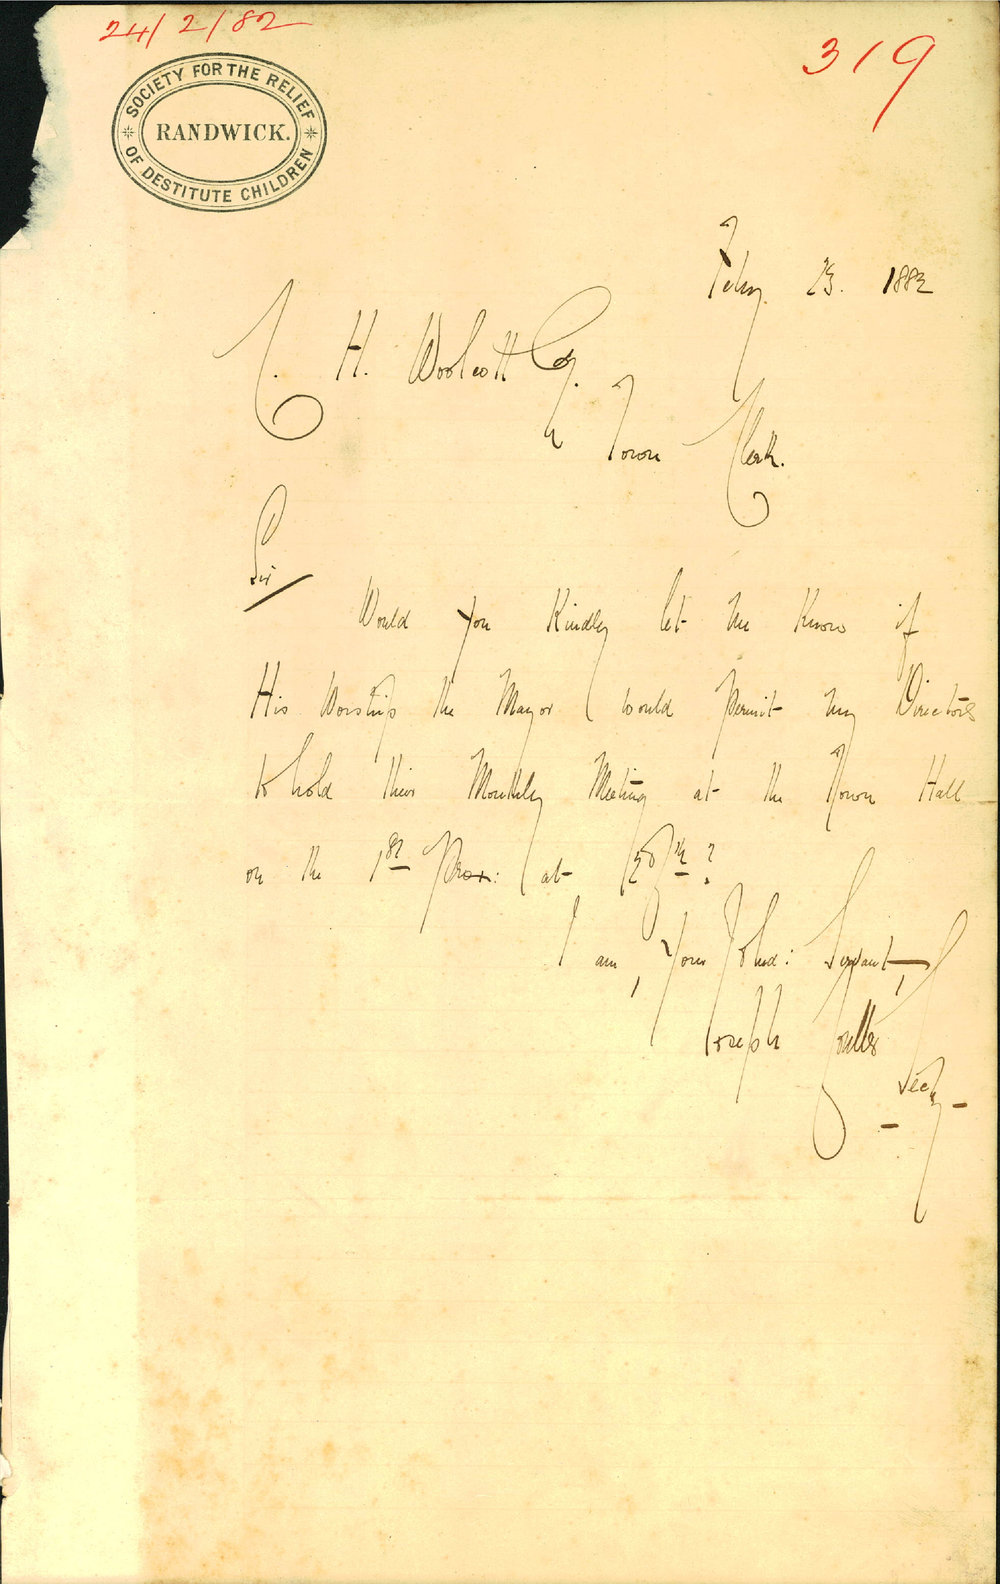 24/2/82
319
SOCIETY FOR THE RELIEF
RANDWICK.
OF DESTITUTE CHILDREN
Feby. 23. 1882
C. H. Woolcott Esq.
Town Clerk.
Sir
Would you Kindly let me Know if
His Worship the Mayor would permit my Directors
to hold their Monthly Meeting at the Town Hall
on the 1st Prox: at
I am, Your Obed: Servant,
Joseph Coulter
Secy